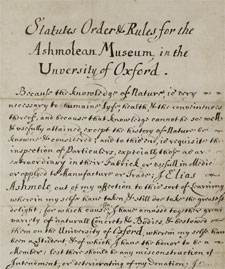 Statutes Orders & Rules, for the
Ashmolean Museum, in the
University of Oxford.
Because the knowledge of Nature, is very
necessary to humaine lyfe, health, & the conveniences
thereof, and because that knowledge cannot be so well
& usefully attained, except the history of Nature be
knowne & considered; and to this end, is requisite the
inspection of Particulars, especially those as are
extraordinary in their Fabrick, or usefull in Medicine
or applyed to Manufacture or Trade: I Elias
Ashmole, out of my affection to this sort of Learning
wherein my selfe have taken & still doe take the greatest
delight; for which cause, I have amassed together great
variety of naturall Concretes & Bodies, & bestowed
them on the University of Oxford, wherein my selfe have
been a Student, & of which I have the honor to be a
Member: lest there should be any misconstruction of my
Intendment, or deteriorating of my Donation; I